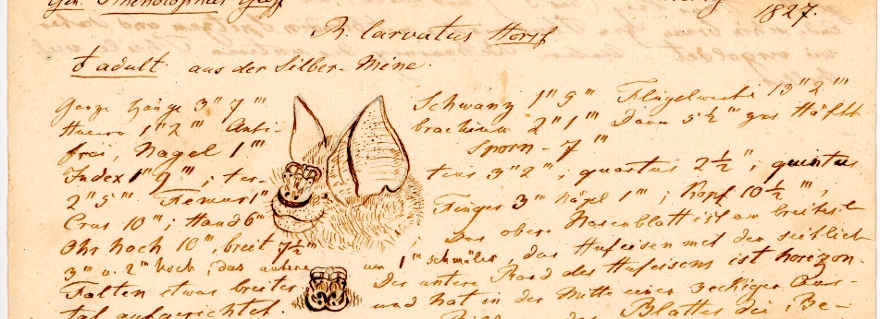 Gen. Rhinolophus Geoff
1827.
Rh. larvatus Horsf
♂ adult aus der Silber-Mine.
Ganze Länge 3" 7"' Schwanz 1" 5" Flügelweite 13" 2"'
Humer 1" 2"' Anti- brachium 2" 1"' Daum 5½"' zur Hälfte
frei, Nagel 1"' Sporn - 7"'
Index 1" 9"'; ter- tius 3" 2"; quartus 2½"; quintus
2" 5"' Femur 1" Finger 3" Nägel 1"'; Kopf 10½"',
Crus 10"'; Hand 6" ; Das obere Nasenblatt ist am breitest
Ohr hoch 10", breit 7½" um 1"' schmäler, das Hufeisen mit der seitlich
3" u. 2" hoch, das untere Der untere Rand des Hufeisens ist horizon-
Falten etwas breiter und hat in der Mitte einen eckigen
tal aufgerichtet. des Blattes die Be-